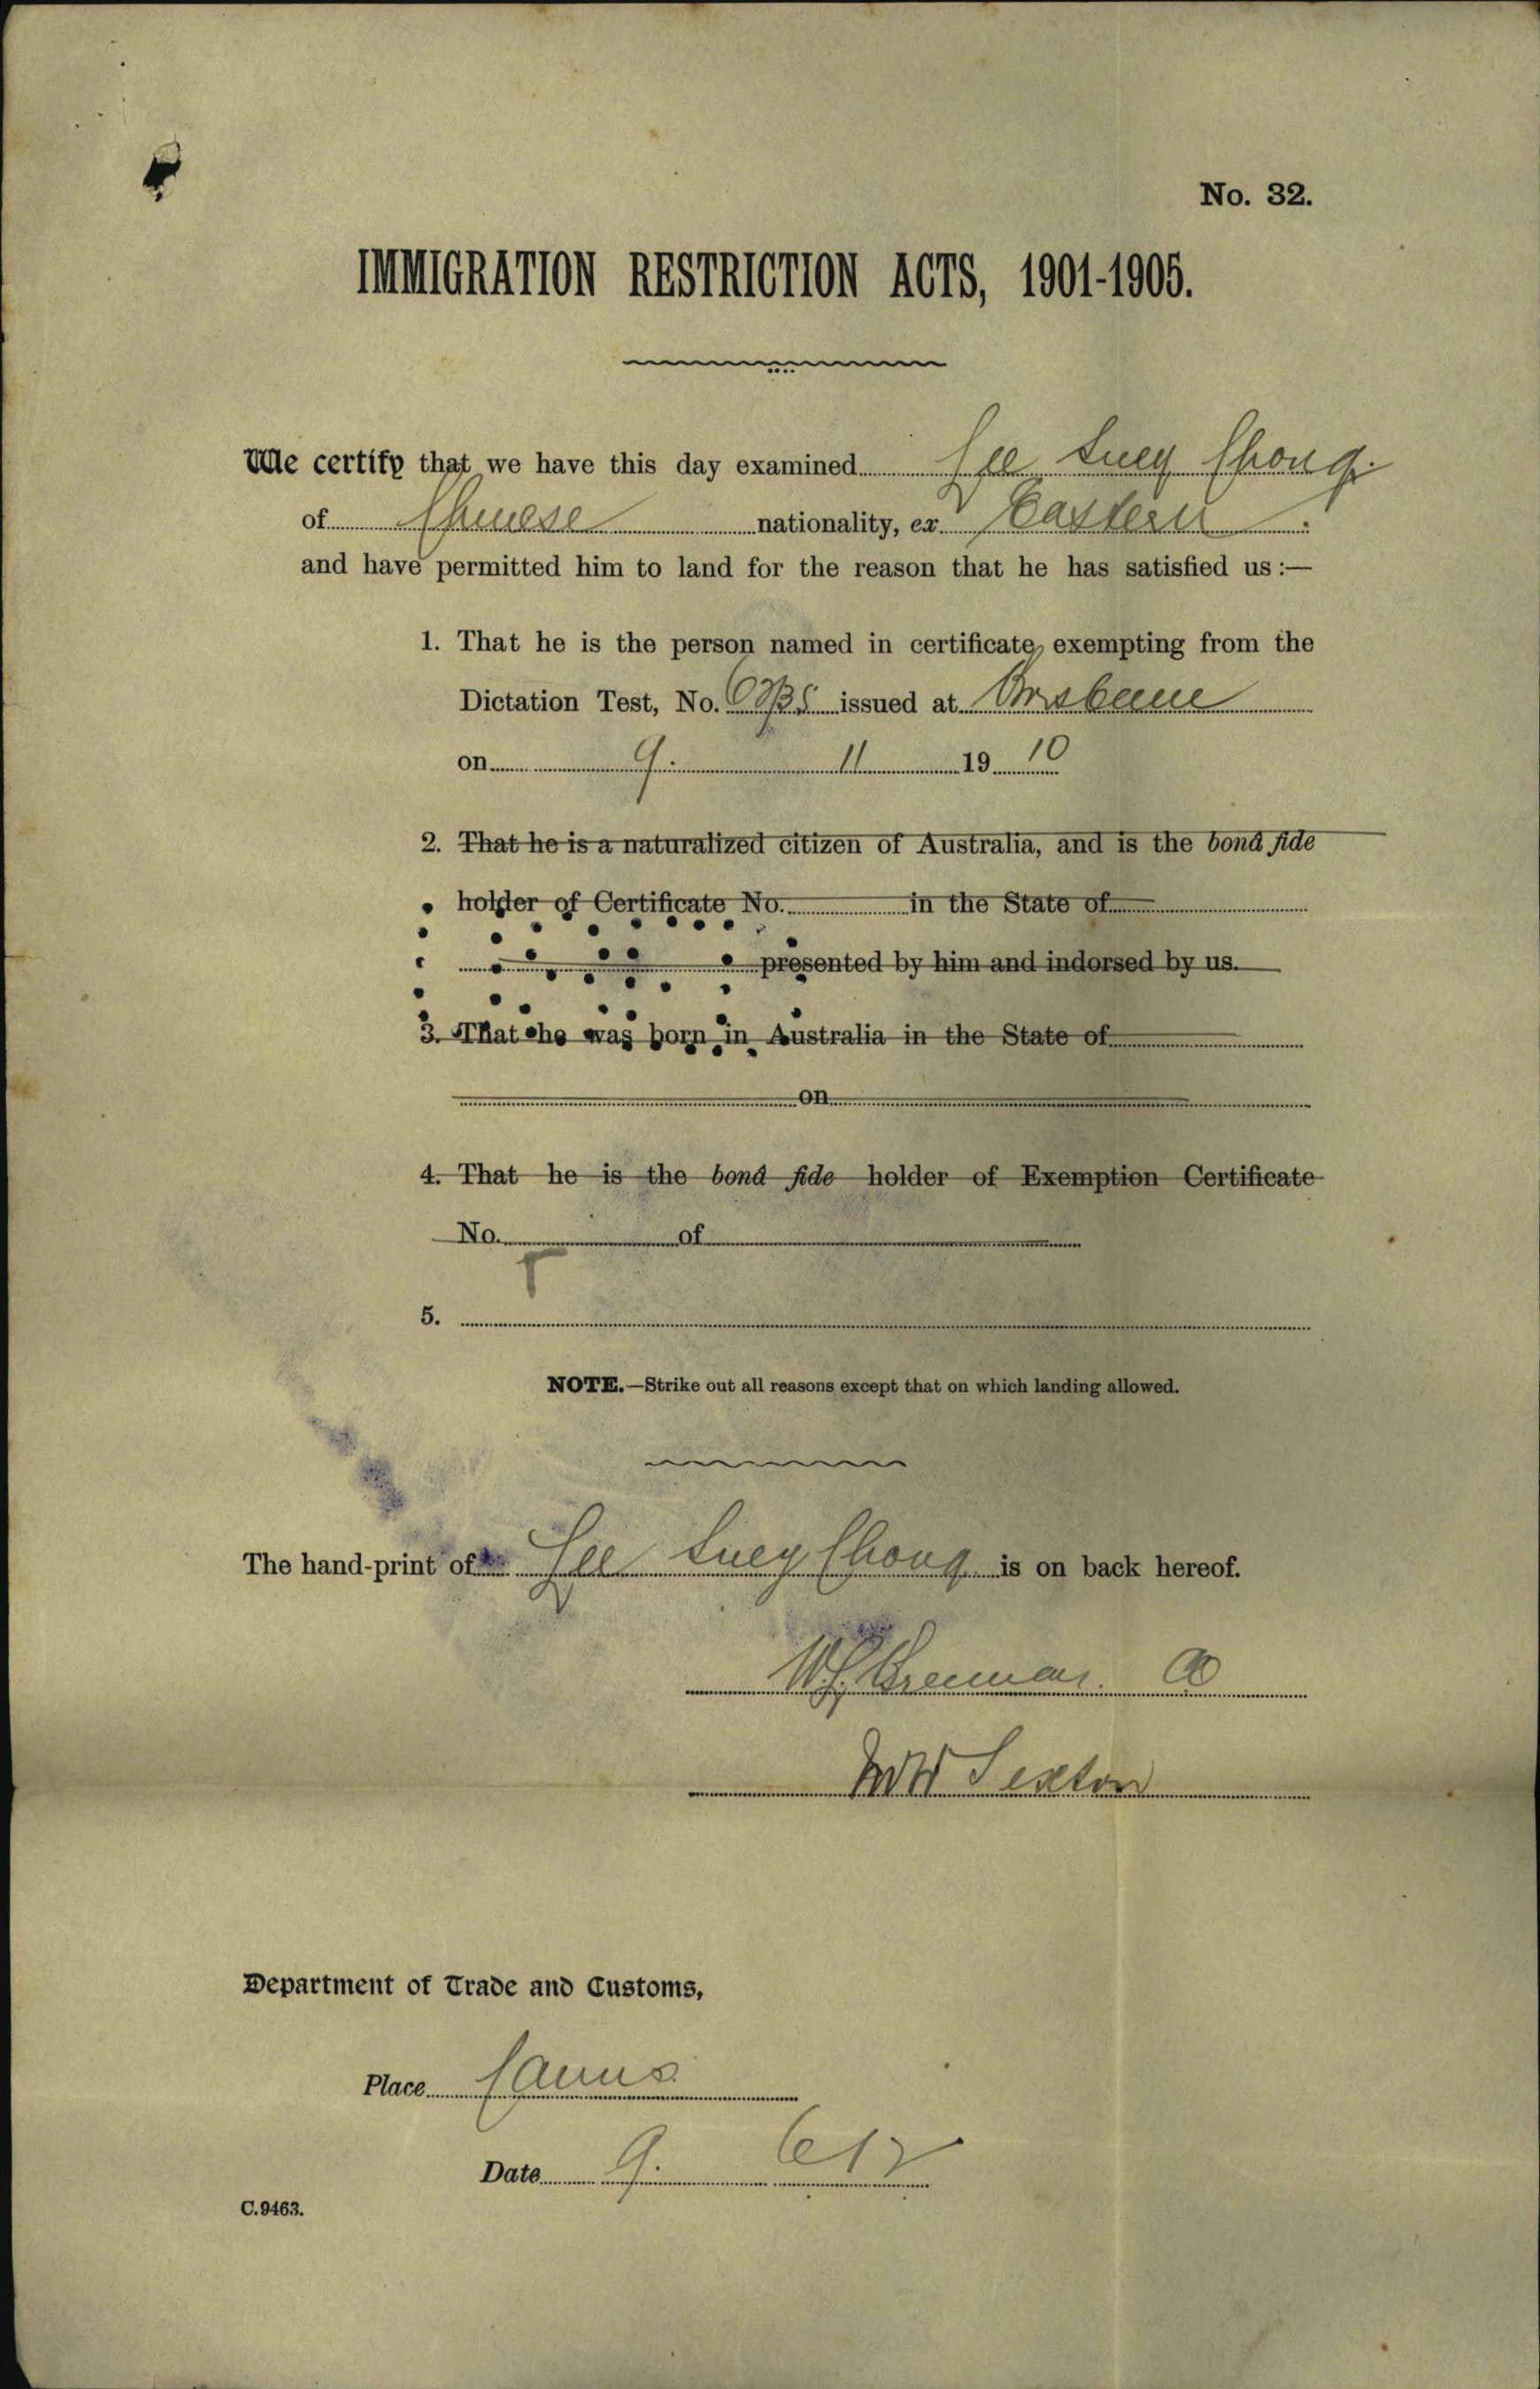 No. 32.
IMMIGRATION RESTRICTION ACTS, 1901-1905.
We certify that we have this day examined Lee Suey Chong.
of Chinese nationality, ex Eastern
and have permitted him to land for the reason that he has satisfied us :—
1. That he is the person named in certificate, exempting from the
Dictation Test, No. issued at Brisbane
on 9. 11 19 10
2. That he is a naturalized citizen of Australia, and is the bonâ fide
holder of Certificate No. in the State of
presented by him and indorsed by us.
3. That he was born in Australia in the State of
on
4. That he is the bonâ fide holder of Exemption Certificate
No. of
5.
NOTE.—Strike out all reasons except that on which landing allowed.
The hand-print of Lee Suey Chong is on back hereof.
Brennan.
Sexton
Department of Trade and Customs,
Place Cairns
Date 9. 6 12
C.9463.